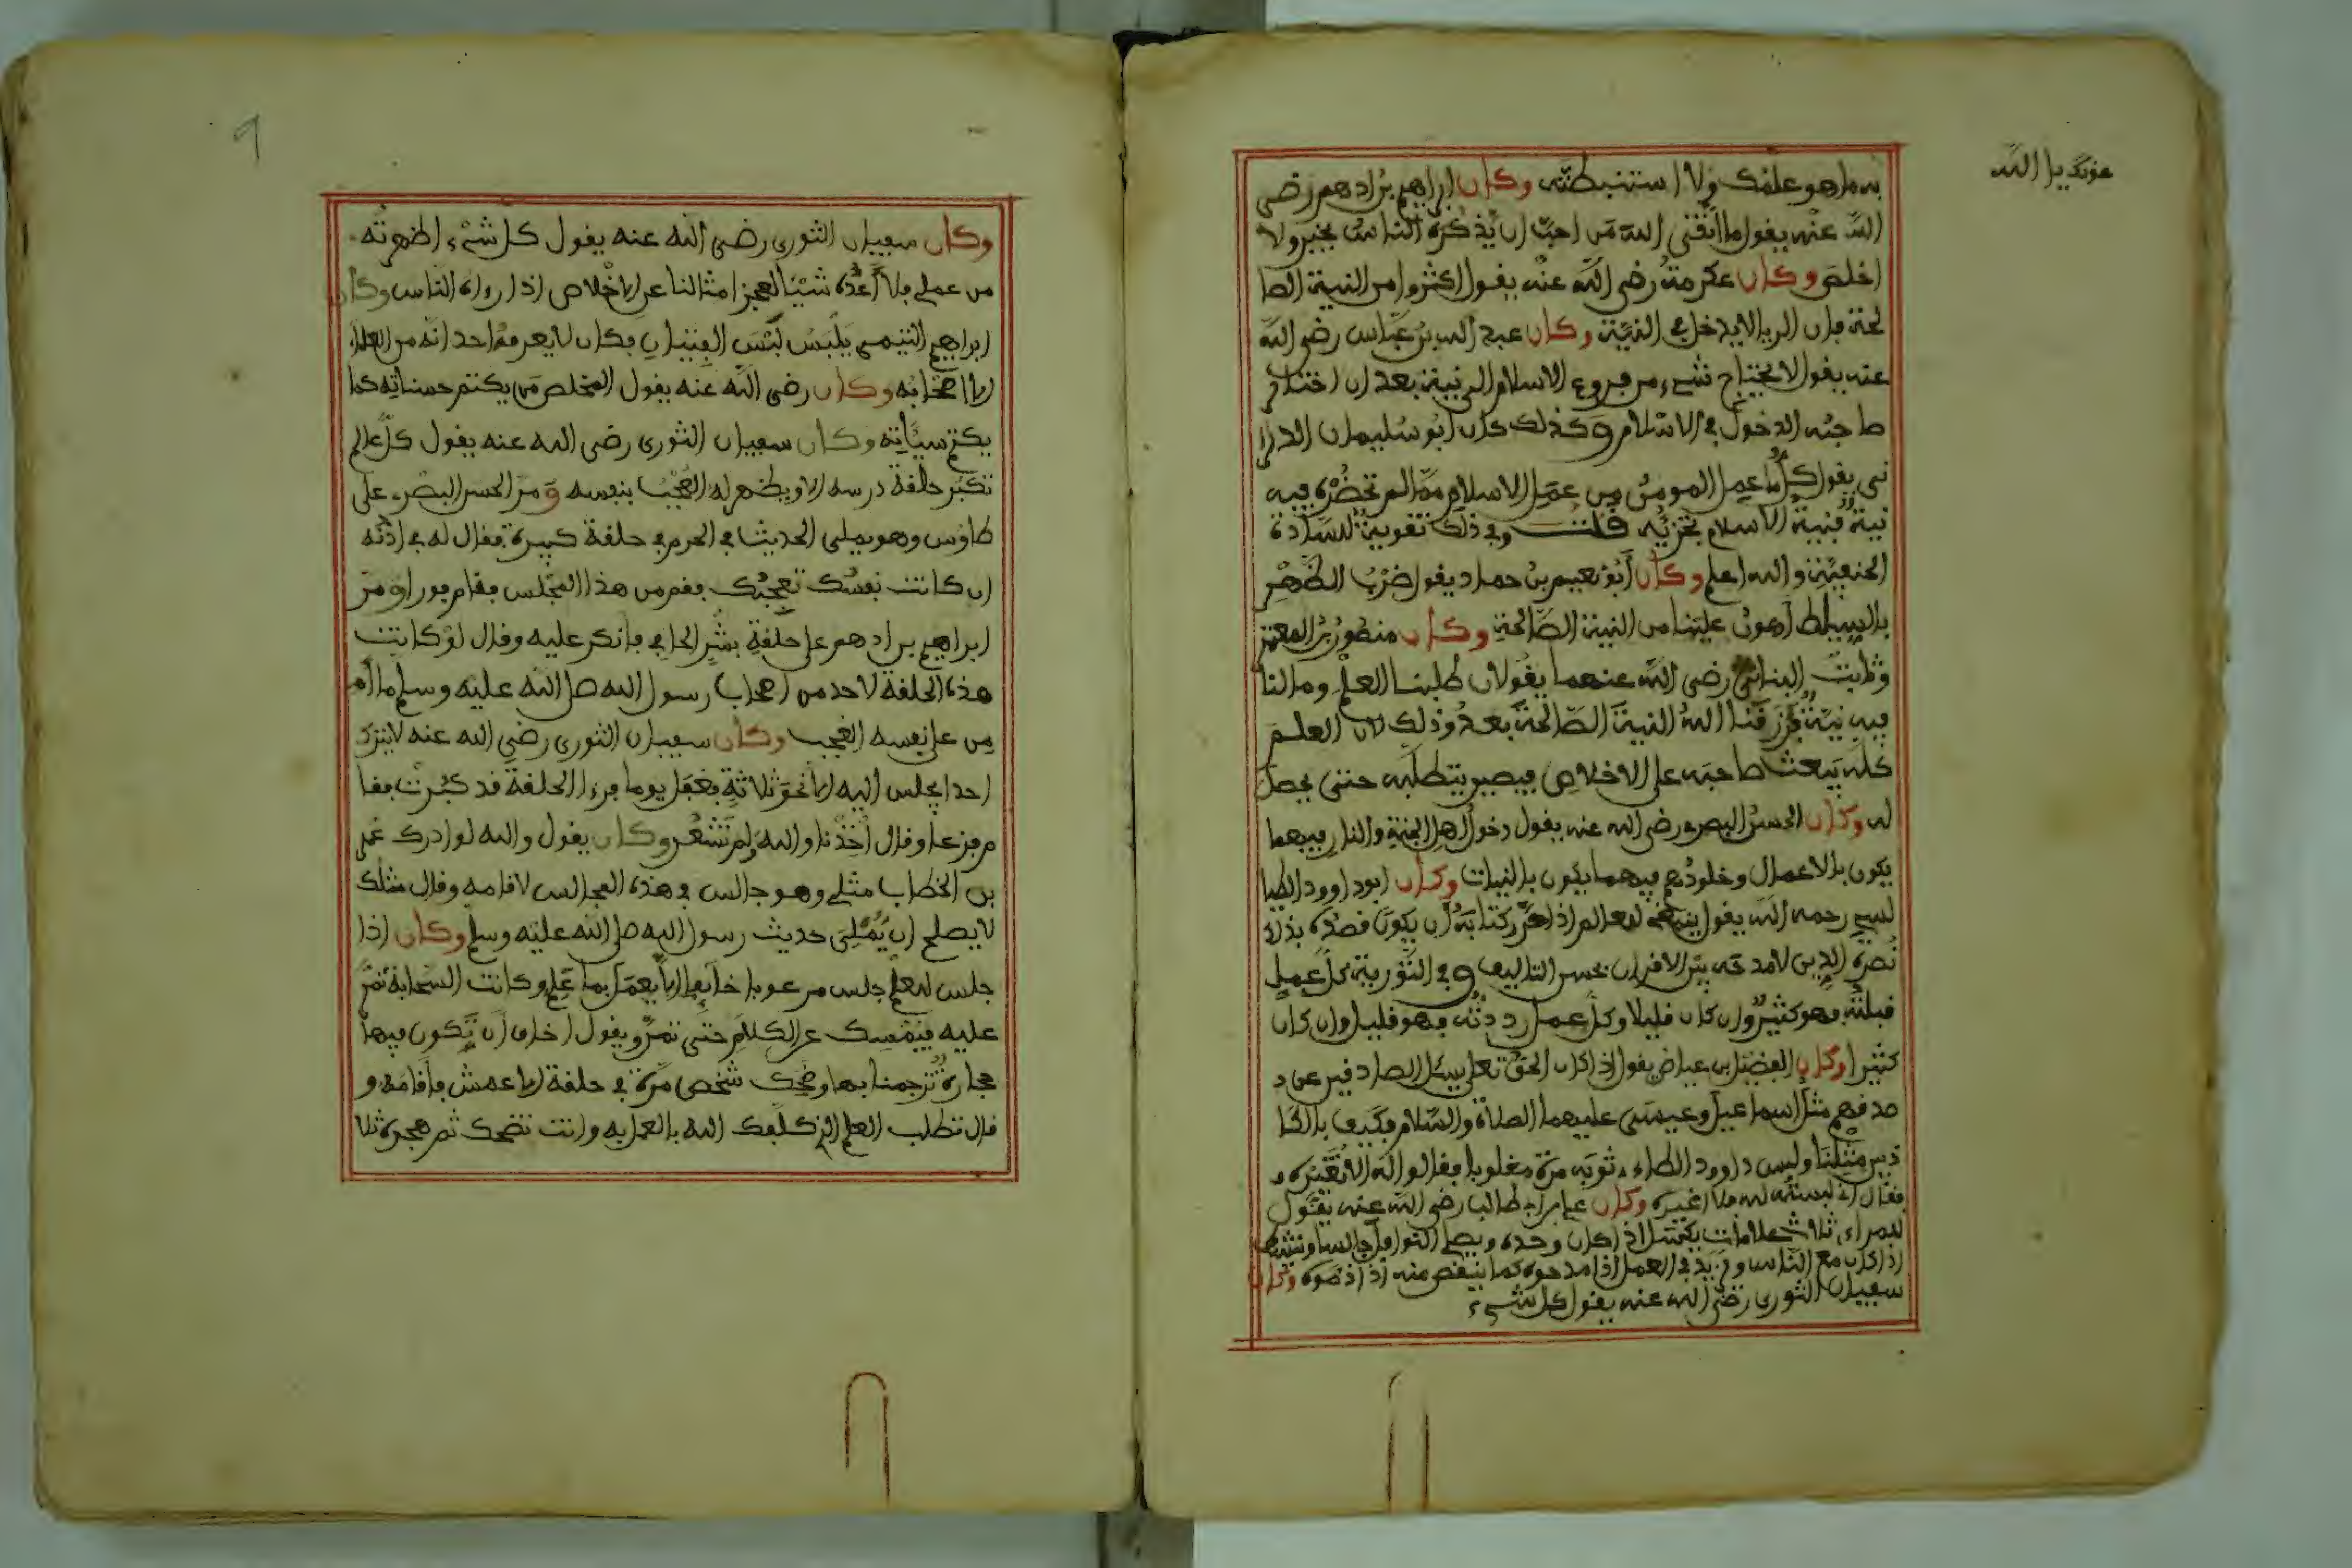 عونك يا الله
به ما هو علمك ولا استنبطته وكان ابراهيم بن ادهم رضى
الله عنه يقول ما اتقى الله من احب ان يذكره الناس بخير ولا
اخلص وكان عكرمة رضى الله عنه يقول اكثروا من النية الصا
لحة فان الريا لا يدخل في النية وكان عبد الله بن عباس رضى الله
عنه يقول لا يحتاج شيء من فروع الاسلام الى نية بعد ان اختار
صاحبه الدخول في الاسلام وكذلك كان ابو سليمان الدارا
نى يقول كل ما عمل المومن من عمل الاسلام مما لم تحضره فيه
نية فنية الاسلام تجزيه قلت وفي ذلك تقوية للسادة
الحنفية والله اعلم وكان ابو نعيم بن حماد يقول ضرب الظهر
بالسياط اهون علينا من النية الصالحة وكان منصور بن المعتمر
وثابت البنانى رضى الله عنهما يقولان طلبنا العلم وما لنا
فيه نية فرزقنا الله النية الصالحة بعد وذلك لان العلم
كله يبعث صاحبه على الاخلاص فيصير يتطلبه حتى يحصل
له وكان الحسن البصري رضى الله عنه يقول دخول اهل الجنة والنار فيهما
يكون بالاعمال وخلودهم فيهما يكون بالنيات وكان ابو داوود الطيا
لسي رحمه الله يقول ينبغي للعالم اذا حرر كتابه ان يكون قصده بذلك
نصرة الدين لا مدحه بين الاقران بحسن التاليف وفي التورية كل عمل
قبلته فهو كثير وان كان قليلا وكل عمل رددته فهو قليل وان كان
كثيرا وكان الفضيل بن عياض يقول اذا كان الحق تعلى يسئل الصادقين عن
صدقهم مثل اسماعيل وعيسى عليهما الصلاة والسلام فكيف بالكا
ذبين مثلنا ولبس داوود الطاءي ثوبه مرة مقلوبا فقالوا له الا تغيره
فقال اني لبسته لله فلا اغيره وكان علي بن ابي طالب رضى الله عنه يقول
للمراءي ثلاث علامات يكسل اذا كان وحده ويصلي النوافل جالسا وينشط
اذا كان مع الناس ويزيد في العمل اذا مدحوه كما ينقص منه اذا ذموه وكان
سفيان الثوري رضى الله عنه يقول كل شيء
وكان سفيان الثورى رضى الله عنه يقول كل شىء اظهرته
من عملى فلا اعده شيئا لعجز امثالنا عن الاخلاص اذا رواه الناس وكان
ابراهيم التيمى يلبس لبس الفتيان فكان لا يعرفه احد انه من العلماء
الا اصحابه وكان رضى الله عنه يقول المخلص من يكتم حسناته كما
يكتم سيئاته وكان سفيان الثورى رضى الله عنه يقول كل عالم
تكبر حلقة درسه الا ويظهر له العجب بنفسه ومر الحسن البصري على
طاوس وهو يملى الحديث في الحرم في حلقة كبيرة فقال له في اذنه
ان كانت نفسك تعجبك فقم من هذا المجلس فقام فورا ومر
ابراهيم بن ادهم على حلقة بشر الحافي فانكر عليه وقال لو كانت
هذه الحلقة لاحد من اصحاب رسول الله صلى الله عليه وسلم ما امن
من على نفسه العجب وكان سفيان الثورى رضي الله عنه لا يترك
احدا يجلس اليه الا نحو ثلاثة فغفل يوما فرءا الحلقة قد كبرت فقا
م فزعا وقال اخذنا والله ولم نشعر وكان يقول والله لو ادرك عمر
بن الخطاب مثلى وهو جالس في هذه المجالس لاقامه وقال مثلك
لا يصلح ان يملى حديث رسول الله صلى الله عليه وسلم وكان اذا
جلس للعلم جلس مرعوبا خائفا الا يعمل بما علم وكانت السحابة تمر
عليه فيمسك عن الكلام حتى تمر ويقول اخاف ان تكون فيها
حجارة ترجمنا بها وضحك شخص مرة في حلقة الاعمش فاقامه و
قال تطلب العلم الذي كلفك الله بالعمل به وانت تضحك ثم هجره ثلا